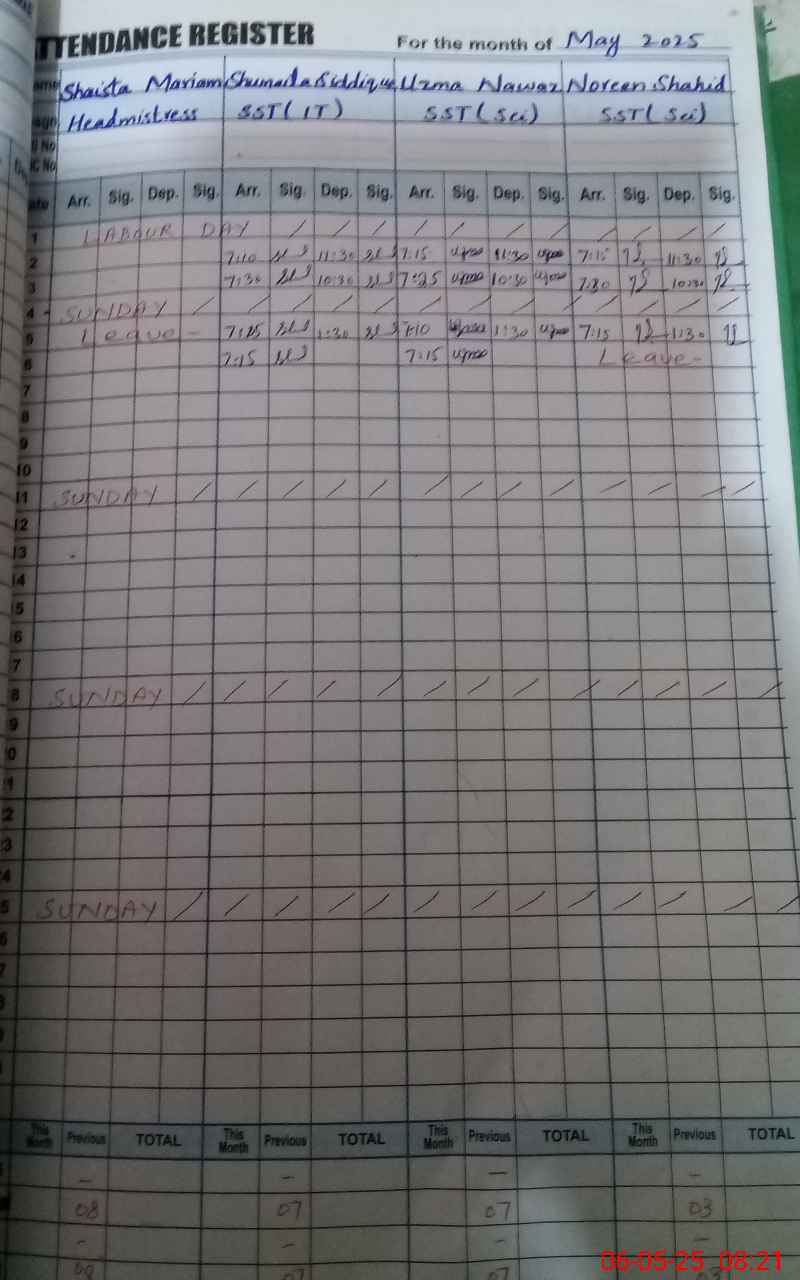 ATTENDANCE REGISTER For the month of May 2025
Shaista Mariam Shumaila Siddique Uzma Nawaz Noreen Shahid
Headmistress SST(IT) SST(Sci) SST(Sci)
Arr. Sig. Dep. Sig. Arr. Sig. Dep. Sig. Arr. Sig. Dep. Sig. Arr. Sig. Dep. Sig.
1 LABOUR DAY / / / / / / / / / /
2 7:10 11:30 7:15 11:30 7:15 11:30
3 7:30 10:30 7:25 10:30 7:30 10:30
4 SUNDAY / / / / / / / / / / / / /
5 Leave - 7:15 11:30 7:10 11:30 7:15 11:30
6 7:15 7:15 Leave -
7
8
9
10
11 SUNDAY / / / / / / / / / / / / /
12
13
14
5
6
7
8 SUNDAY / / / / / / / / / / / / /
9
0
1
2
3
4
5 SUNDAY / / / / / / / / / / / / /
6
7
This Month Previous TOTAL This Month Previous TOTAL This Month Previous TOTAL This Month Previous TOTAL
- - - -
08 07 07 03
- - - -
08 07 07
06-05-25 08:21